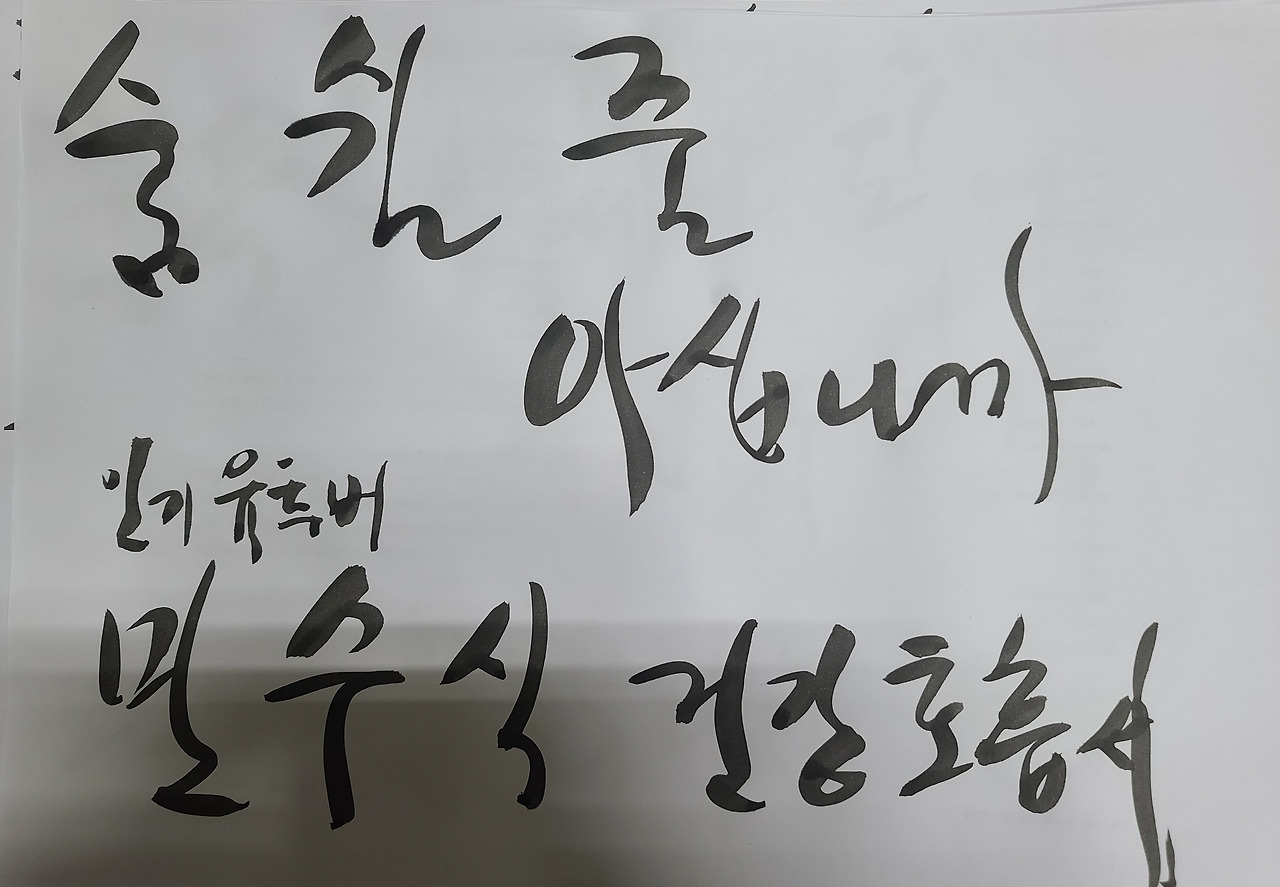 숨 쉴 줄
아십니까
인기 유튜버
민수식 건강호흡서